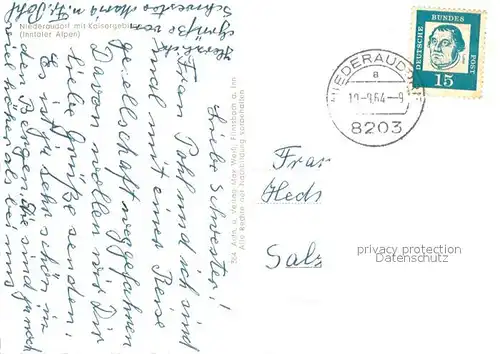 Niederaudorf mit Kaisergebirge
(Inntaler Alpen)
Liebe Schwester!
Frau Pohl und ich sind
mal mit einer Reise
gesellschaft weggefahren
Davon wollen wir Dir
liebe Grüße senden.
Es ist ja sehr schön in
den Bergen, die sind ja noch
viel höher als bei uns
Herzliche
Grüße von
Schwester Maria u. Fr. Pohl
364 Aufn. u. Verlag Max Weiß, Flintsbach a. Inn
Alle Rechte der Nachbildung vorbehalten
NIEDERAUDORF
a
8203
DEUTSCHE BUNDES POST
15
Frau
Heds
Salz
privacy protection
Datenschutz